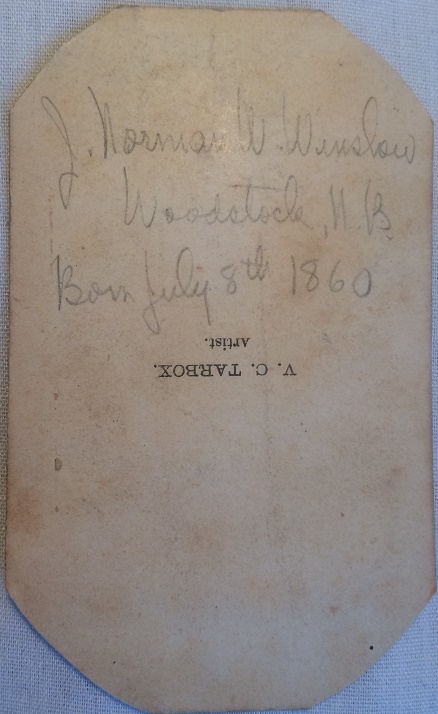 J. Norman W. Winslow
Woodstock, N.B.
Born July 8th 1860
V. C. TARBOX.
Artist.